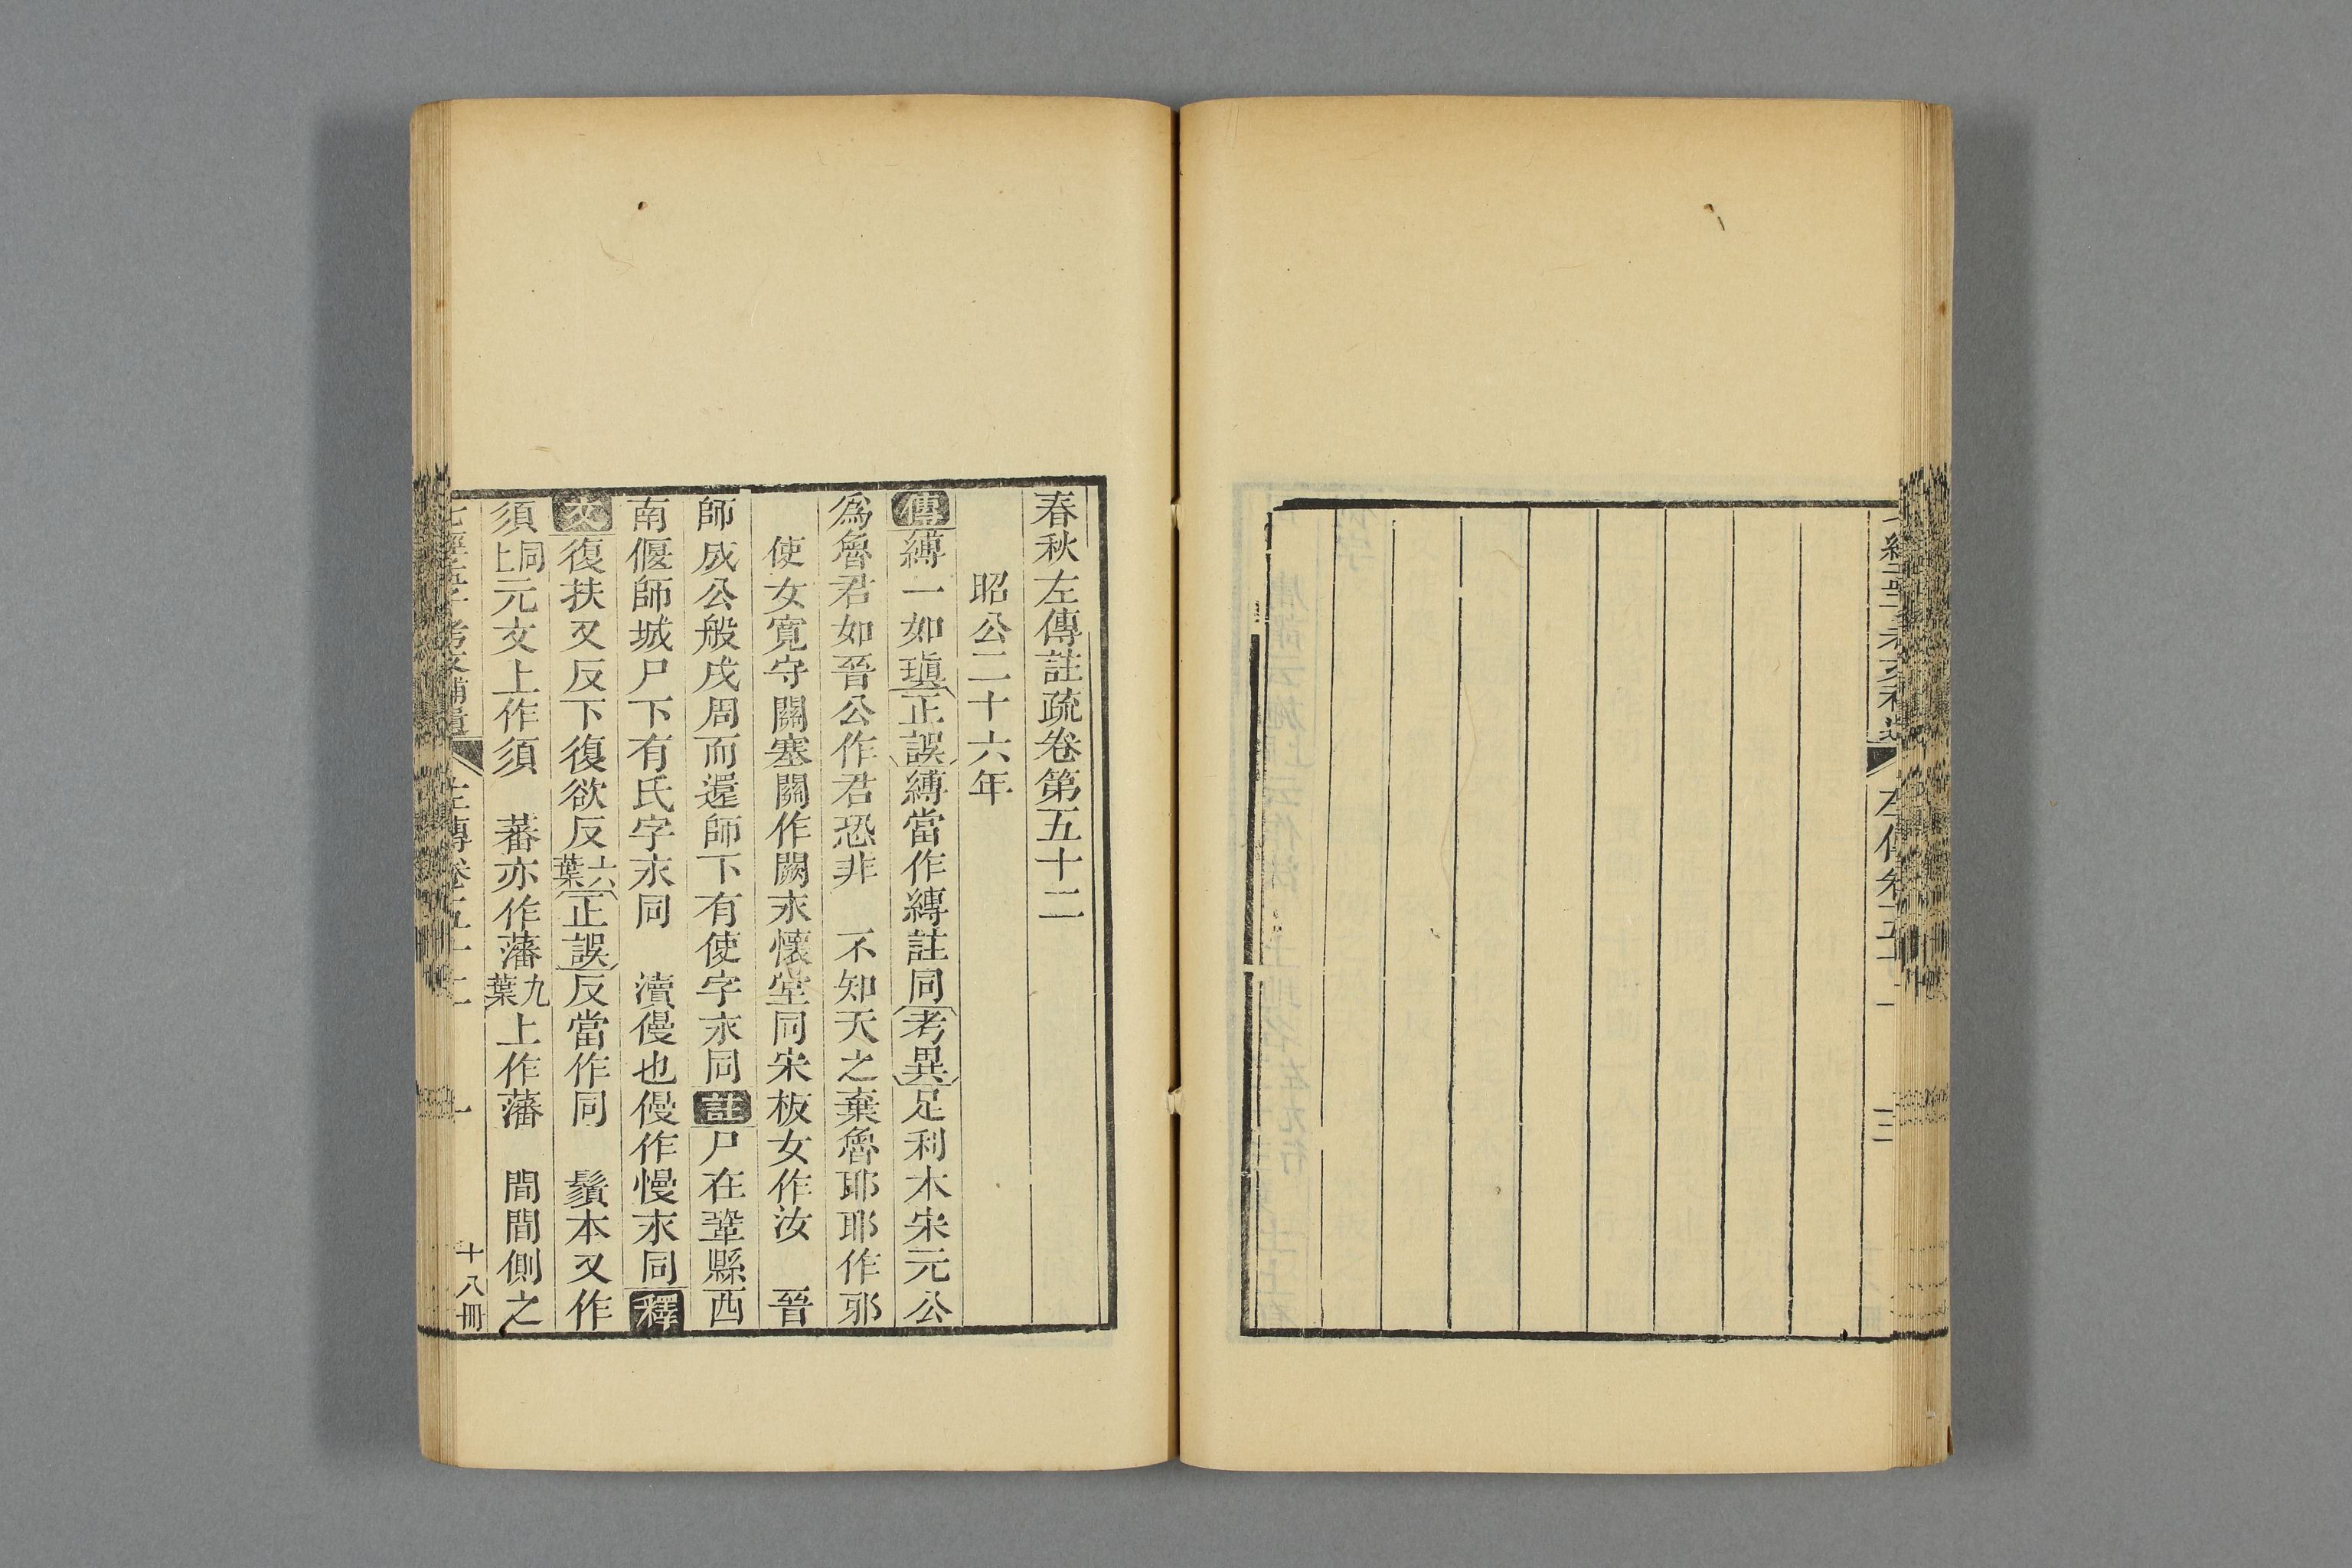 左傳卷五十一
三
春秋左傳註疏卷第五十二
昭公二十六年
傳縛一如瑱正誤縛當作縳註同考異足利本宋元公
爲魯君如晉公作君恐非　不知天之棄魯耶耶作邪
使女寬守關塞關作闕永懷堂同宋板女作汝　晉
師成公般戍周而還師下有使字永同註尸在鞏縣西
南偃師城尸下有氏字永同　瀆僈也僈作慢永同釋
文復扶又反下復欲反六葉正誤反當作同　鬚本又作
須同上元文上作須　蕃亦作藩九葉上作藩　間間側之
七經孟子考文補遺　左傳卷五十二　一　十八冊